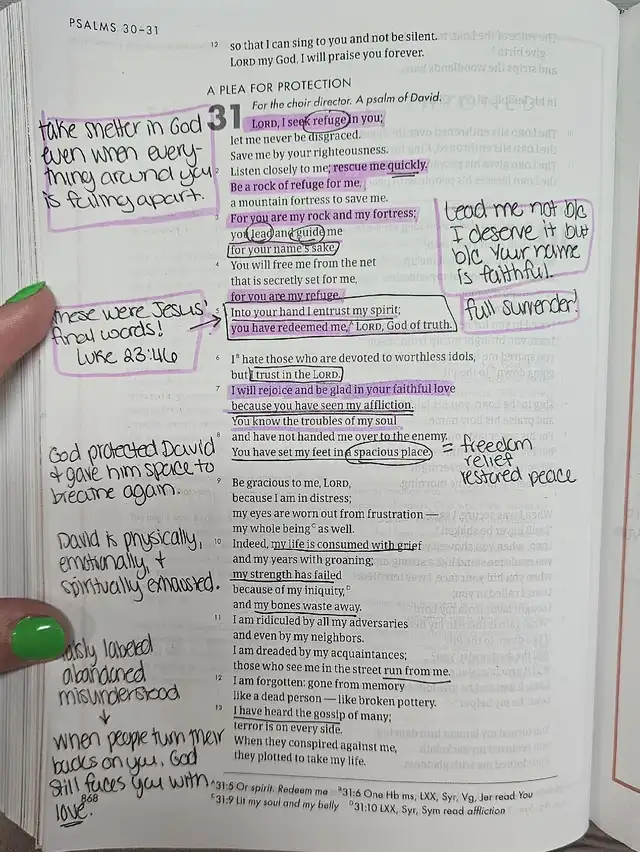 PSALMS 30–31
12 so that I can sing to you and not be silent.
LORD my God, I will praise you forever.
A PLEA FOR PROTECTION
For the choir director. A psalm of David.
31 LORD, I seek refuge in you;
let me never be disgraced.
Save me by your righteousness.
2 Listen closely to me; rescue me quickly.
Be a rock of refuge for me,
a mountain fortress to save me.
3 For you are my rock and my fortress;
you lead and guide me
for your name's sake.
4 You will free me from the net
that is secretly set for me,
for you are my refuge.
5 Into your hand I entrust my spirit;
you have redeemed me,ᴬ LORD, God of truth.
6 Iᴮ hate those who are devoted to worthless idols,
but I trust in the LORD.
7 I will rejoice and be glad in your faithful love
because you have seen my affliction.
You know the troubles of my soul
8 and have not handed me over to the enemy.
You have set my feet in a spacious place.
9 Be gracious to me, LORD,
because I am in distress;
my eyes are worn out from frustration —
my whole beingᶜ as well.
10 Indeed, my life is consumed with grief
and my years with groaning;
my strength has failed
because of my iniquity,ᴰ
and my bones waste away.
11 I am ridiculed by all my adversaries
and even by my neighbors.
I am dreaded by my acquaintances;
those who see me in the street run from me.
12 I am forgotten: gone from memory
like a dead person — like broken pottery.
13 I have heard the gossip of many;
terror is on every side.
When they conspired against me,
they plotted to take my life.
take shelter in God
even when every-
thing around you
is falling apart.
Lead me not b/c
I deserve it but
b/c Your name
is faithful.
full surrender!
these were Jesus'
final words!
Luke 23:46
God protected David
+ gave him space to
breathe again.
= freedom
relief
restored peace
David is physically,
emotionally, +
spiritually exhausted.
labeled
abandoned
misunderstood
↓
when people turn their
backs on you, God
still faces you with
love.
ᴬ31:5 Or spirit. Redeem me ᴮ31:6 One Hb ms, LXX, Syr, Vg, Jer read You
ᶜ31:9 Lit my soul and my belly ᴰ31:10 LXX, Syr, Sym read affliction
868